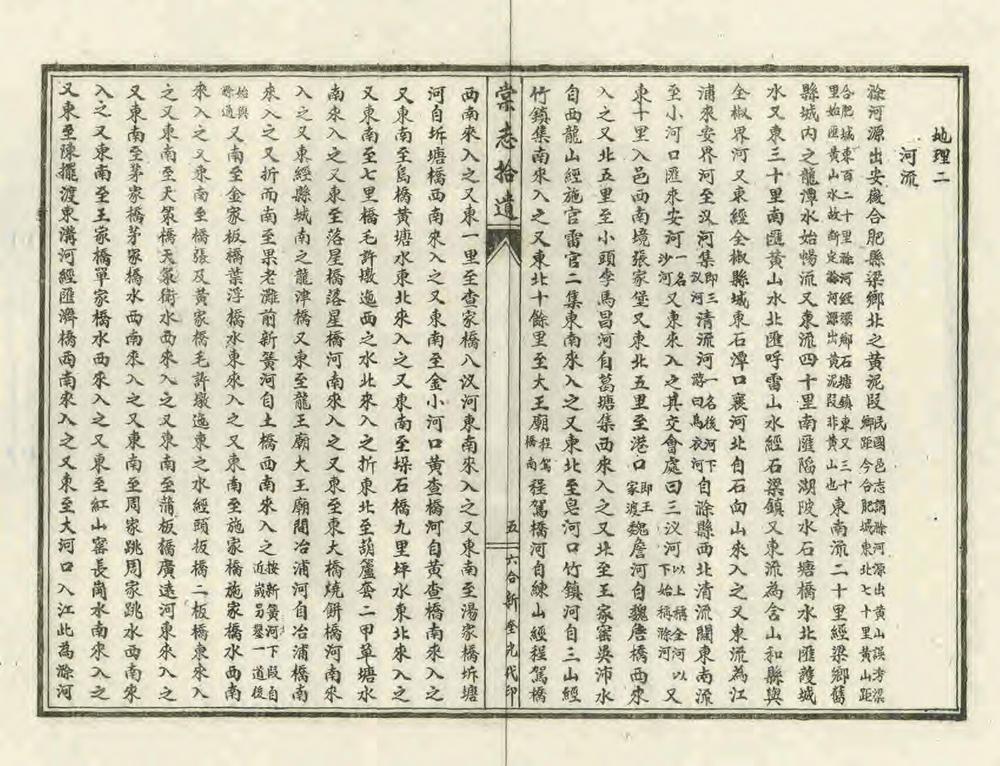 地理二
河流
滁河源出安徽合肥縣梁鄉北之黃泥段民國邑志謂滁河源出黃山誤考梁鄉距今合肥城東北七十里黃山距
合肥城東百二十里滁河經梁鄉石塘鎮東又三十里始匯黃山水故斷定滁河源出黃泥段非黃山也東南流二十里經梁鄉舊
縣城內之龍潭水始暢流又東流四十里南匯隖湖陂水石塘橋水北匯護城
水又東三十里南匯黃山水北匯呼雷山水經石梁鎮又東流為含山和縣與
全椒界河又東經全椒縣城東石潭口襄河北自石向山來入之又東流為江
浦來安界河至汊河集即三汊河清流河一名後河下游曰烏衣河自滁縣西北清流關東南流
至小河口匯來安河一名沙河又東來入之其交會處曰三汊河以上稱全河以下始稱滁河又
東十里入邑西南境張家堡又東北五里至港口即王家渡魏詹河自魏詹橋西來
入之又北五里至小頭李馬昌河自葛塘集西來入之又北至王家窰吳沛水
自西龍山經施官雷官二集東南來入之又東北至皂河口竹鎮河自三山經
竹鎮集南來入之又東北十餘里至大王廟程駕橋南程駕橋河自練山經程駕橋
棠志拾遺
五
六合新登光代印
西南來入之又東一里至查家橋八汊河東南來入之又東南至湯家橋坼塘
河自坼塘橋西南來入之又東南至金小河口黃查橋河自黃查橋南來入之
又東南至烏橋黃塘水東北來入之又東南至垛石橋九里坪水東北來入之
又東南至七里橋毛許墩迤西之水北來入之折東北至葫蘆套二甲草塘水
南來入之又東至落星橋落星橋河南來入之又東至東大橋燒餅橋河南來
入之又東經縣城南之龍津橋又東至龍王廟大王廟間冶浦河自冶浦橋南
來入之又折而南至果老灘前新簧河自土橋西南來入之按新簧河下段自近歲另鑿一道後
始與滁通又南至金家板橋葉浮橋水東來入之又東南至施家橋施家橋水西南
來入之又東南至橋張及黃家橋毛許墩迤東之水經頭板橋二板橋東來入
之又東南至天策橋天策衛水西來入之又東南至蒲板橋廣遠河東來入之
又東南至茅家橋茅家橋水西南來入之又東南至周家跳周家跳水西南來
入之又東南至王家橋單家橋水西來入之又東至紅山窰長蕩水南來入之
又東至陳擺渡東溝河經匯濟橋西南來入之又東至大河口入江此為滁河